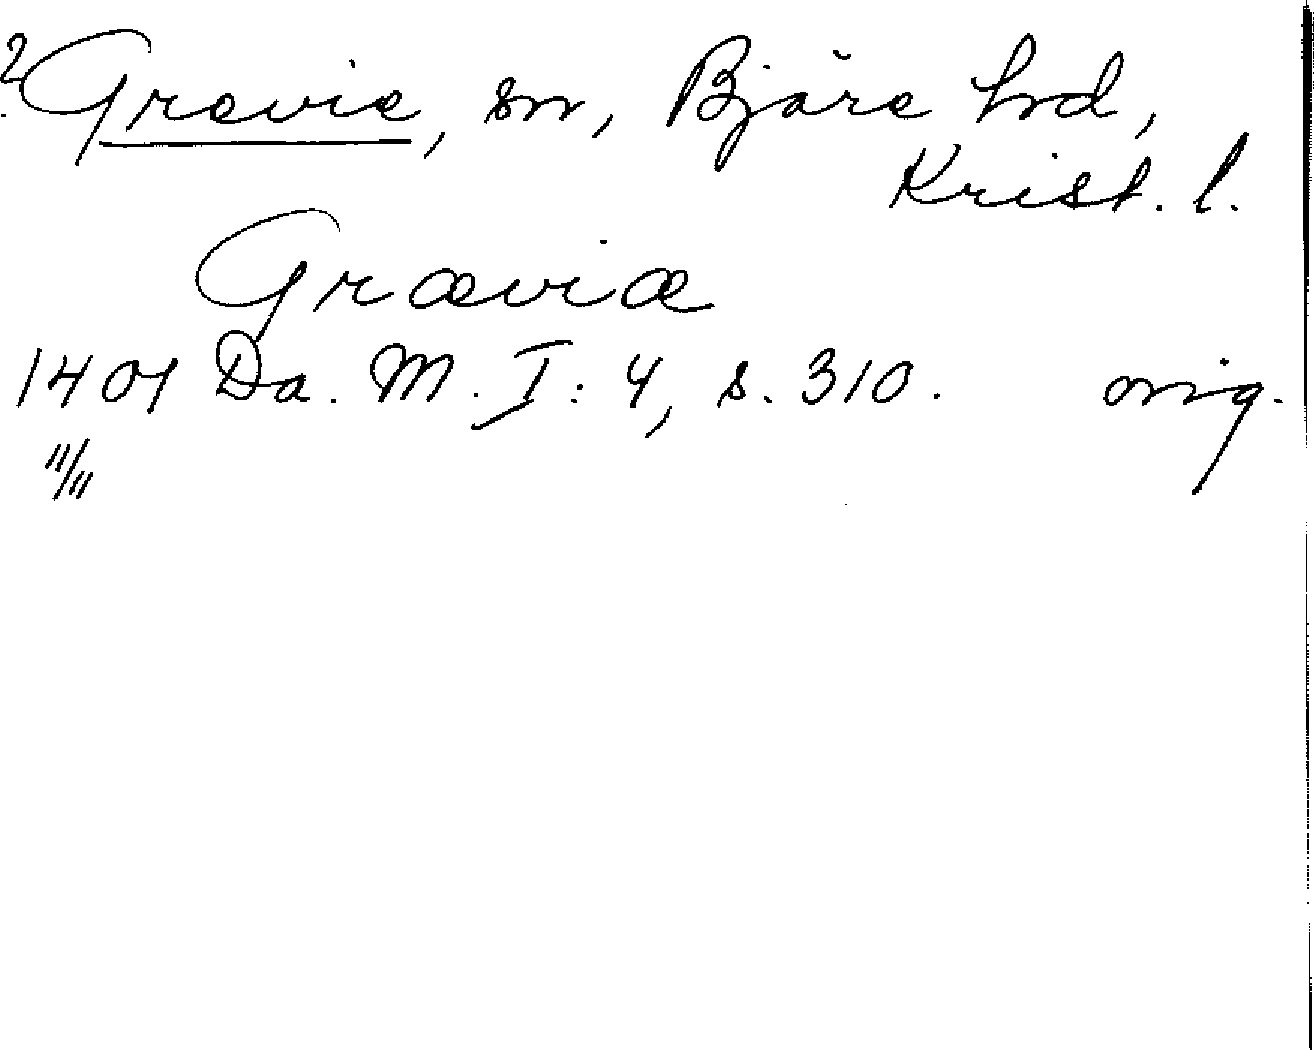 ? Grevie, sn, Bjäre hd,
Krist. l.
Græviæ
1401 Da. M. I: 4, s. 310. orig.
11/11